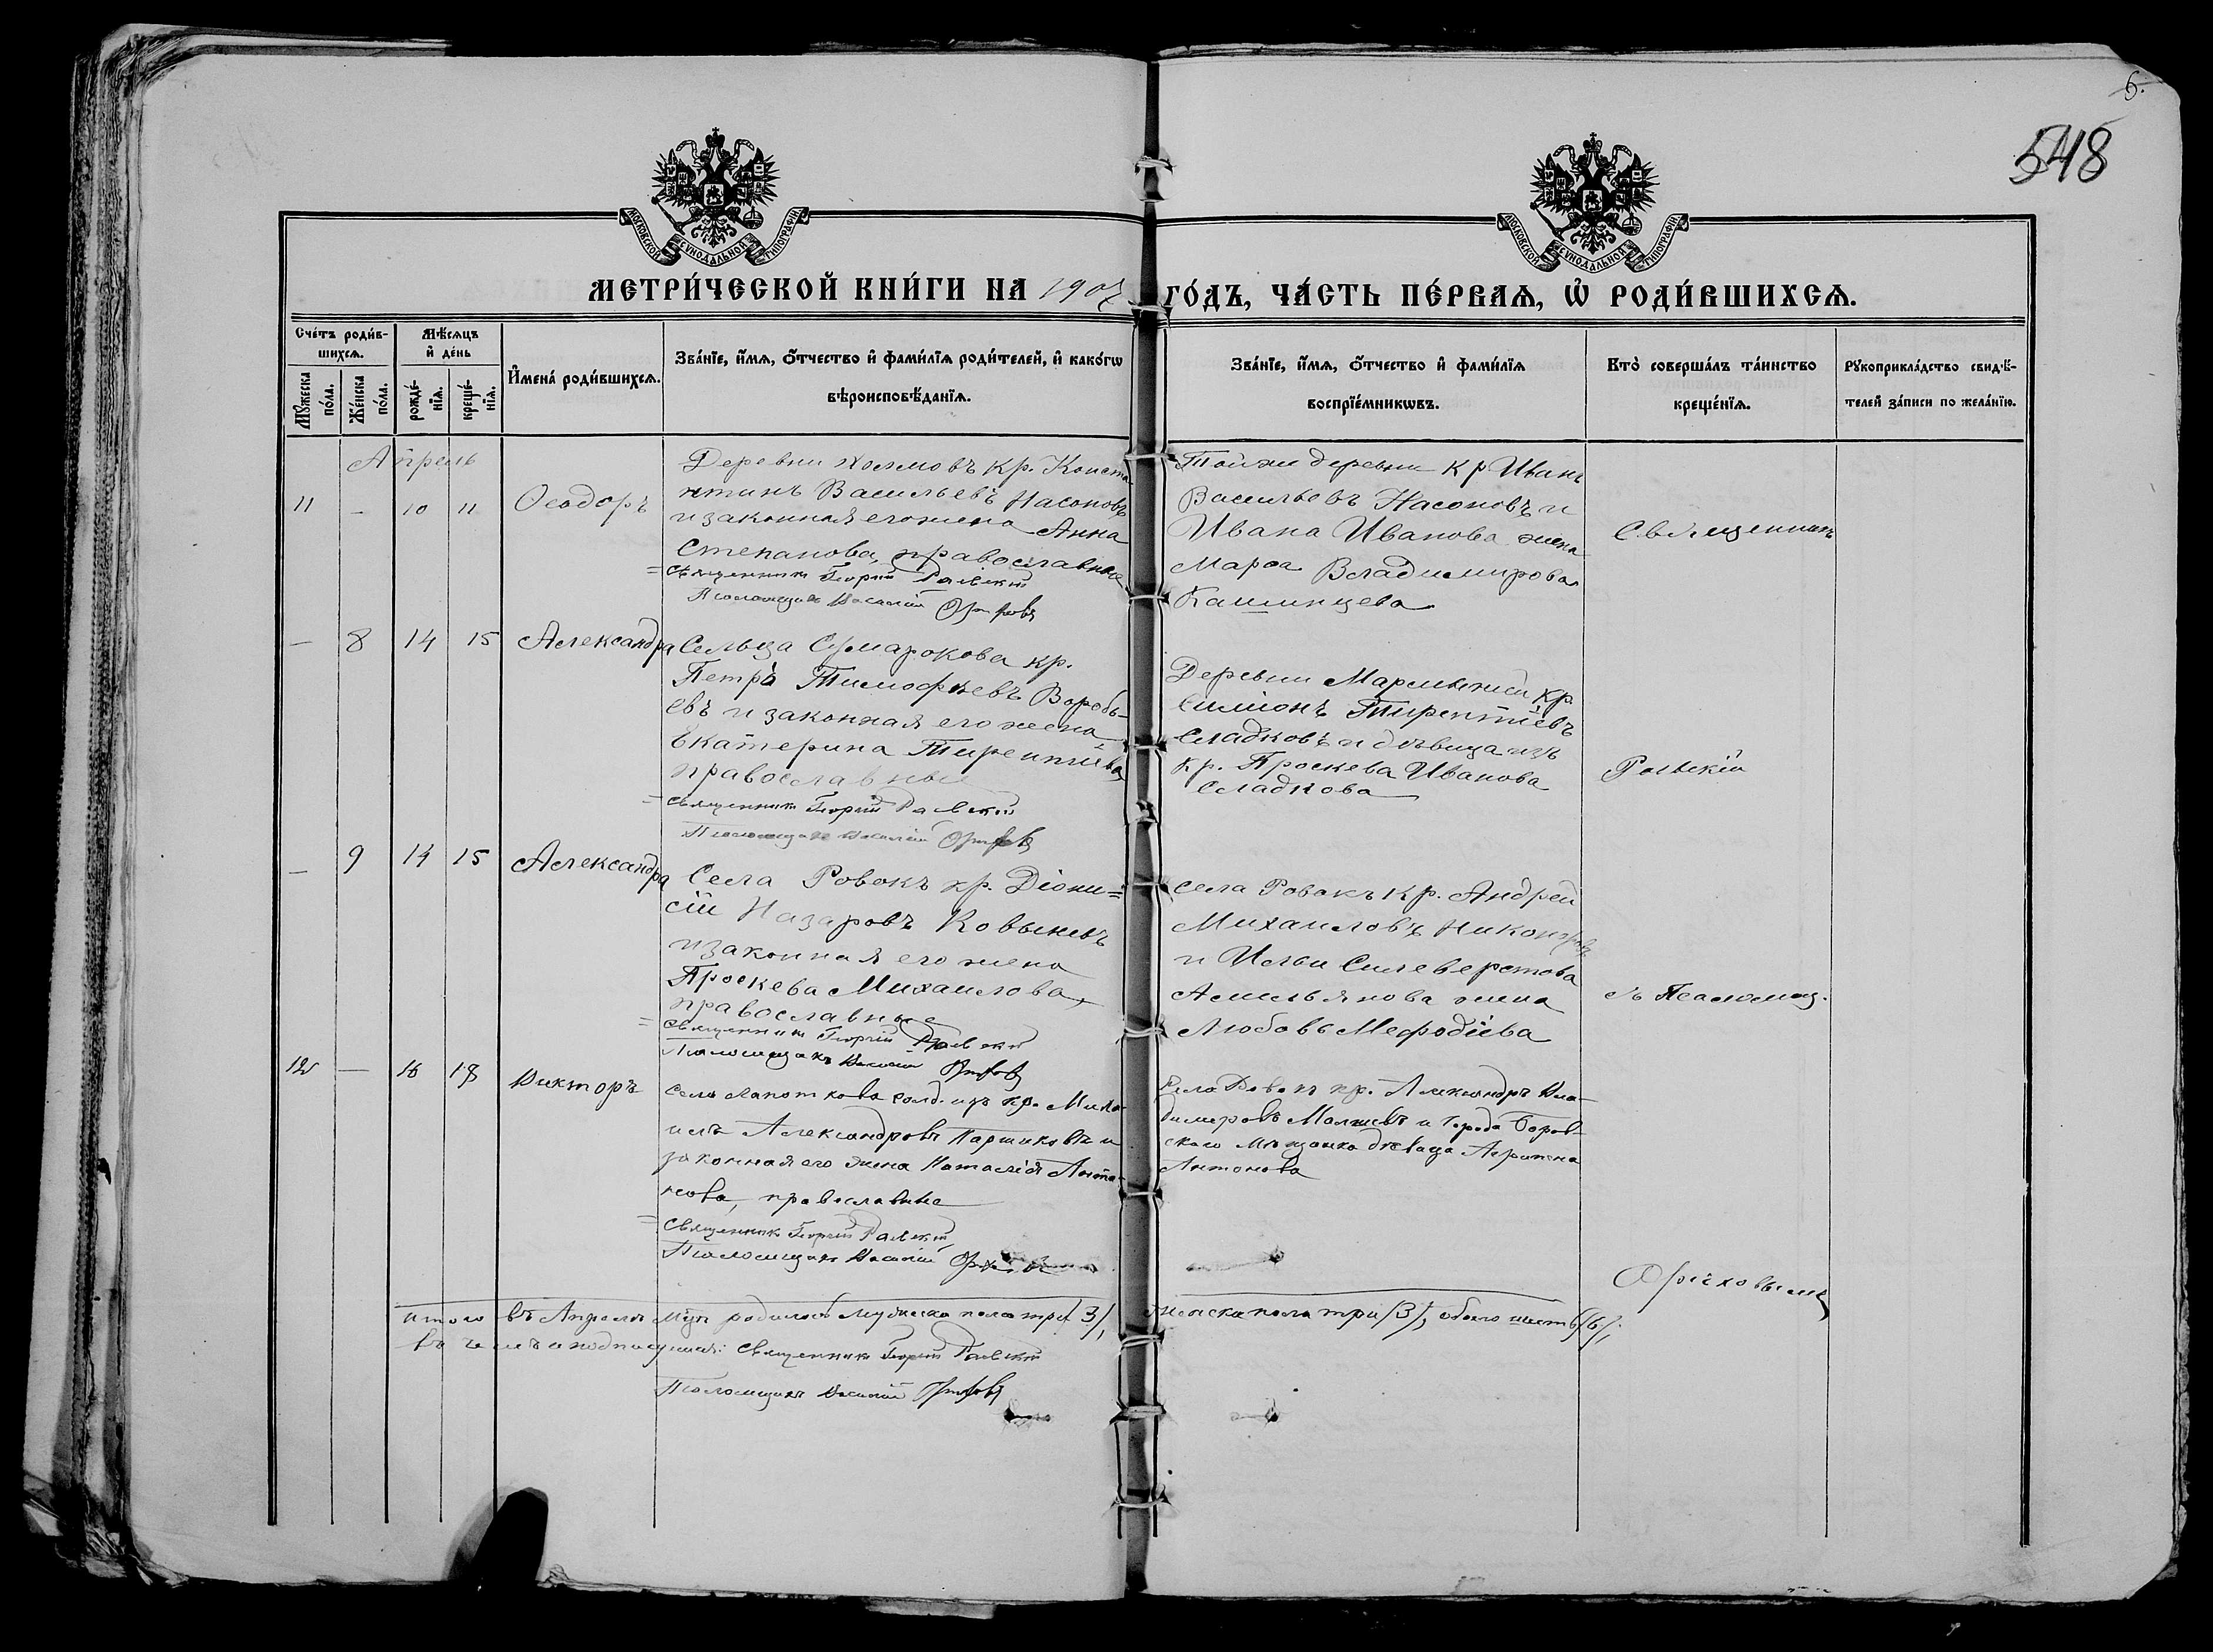 6.
548
МОСКОВСКОЙ СѴНОДАЛЬНОЙ ТИПОГРАФІИ
МОСКОВСКОЙ СѴНОДАЛЬНОЙ ТИПОГРАФІИ
МЕТРИ́ЧЕСКОЙ КНИ́ГИ НА 1907 ГО́ДЪ, ЧА́СТЬ ПЕ́РВАѦ, Ѡ҆ РОДИ́ВШИХСѦ.
Сче́тъ роди́в-
шихсѧ.
Мꙋ́жеска по́ла.
Же́нска по́ла.
Мѣ́сѧцъ
и҆ де́нь
рожде́-
нїѧ.
креще́-
нїѧ.
И҆мена̀ роди́вшихсѧ.
Зва́нїе, и҆́мѧ, ѻ҆́тчество и҆ фами́лїѧ роди́телей, и҆ како́гѡ
вѣроисповѣ́данїѧ.
Зва́нїе, и҆́мѧ, ѻ҆́тчество и҆ фами́лїѧ
воспрїе́мникѡвъ.
Кто̀ соверша́лъ та́инство
креще́нїѧ.
Рꙋкоприкла́дство свидѣ́-
телей за́писи по жела́нїю.
Апрель
11 - 10 11 Ѳеодоръ
Деревни Холмовъ кр. Конста-
нтинъ Васильевъ Насоновъ
и законная его жена Анна
Степанова, православные
Священникъ Георгій Раевскій
Псаломщикъ Василій
Той же деревни кр Иванъ
Васильевъ Насоновъ и
Ивана Иванова жена
Марѳа Владимирова
Камынцева
Священникъ
- 8 14 15 Александра
Сельца Сумарокова кр.
Петръ Тимофѣевъ Воробь-
евъ и законная его жена
Екатерина Тирентіева
православные
Священникъ Георгій Раевскій
Псаломщикъ Василій
Деревни кр.
Симіонъ Тирентіевъ
Сладковъ и дѣвица изъ
кр. Проскева Иванова
Сладкова
Раевскій
- 9 14 15 Александра
Села Ровокъ кр. Діони-
сій Назаровъ
и законная его жена
Проскева Михаилова,
православные
Священникъ Георгій Раевскій
Псаломщикъ Василій
Села Ровокъ кр. Андрей
Михаиловъ Никоноровъ
и Ильи Силеверстова
Амильянова жена
Любовь Меѳодіева
съ Псаломщ.
12 - 16 18 Викторъ
Села Лапоткова солд. изъ кр. Миха-
илъ Александровъ Паршиковъ и
законная его жена Наталія Анто-
нова, православные
Священникъ Георгій Раевскій
Псаломщикъ Василій
Села Ровокъ кр. Александръ Вла-
димировъ и города Боров-
скаго мѣщанка дѣвица Агрипена
Антонова
Орѣховымъ
Итого въ Апрѣлѣ мцѣ родилось мужеска пола три /3/, женска пола три /3/, обоего шесть /6/;
въ чемъ и подписуемся: Священникъ Георгій Раевскій
Псаломщикъ Василій